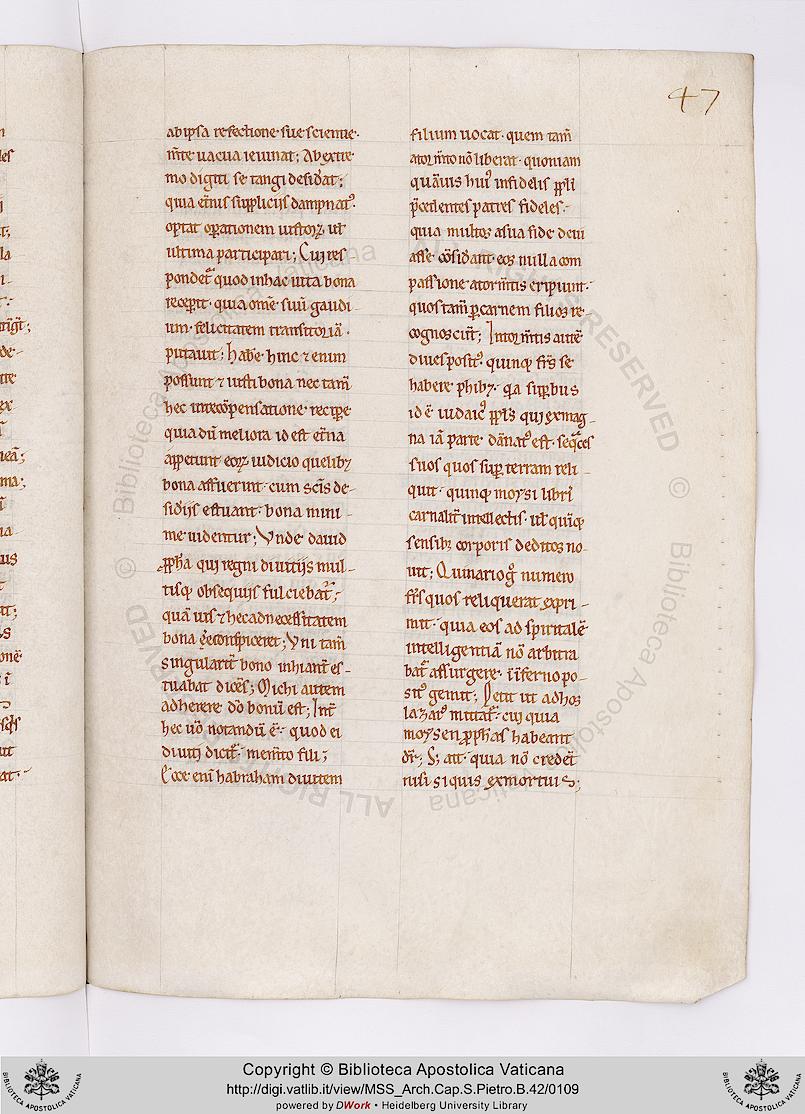 47
ab ipsa refectione sue scientie·
m̅te uacua ieiunat; Ab extre
mo digiti se tangi desiđat;
quia et̅nis suppliciis dampnatꝰ·
optat op̅rationem iustoꝝ ul̅
ultima participari; Cui res
pondet᷑ quod in hac uita bona
recepit· quia om̅e suu̅ gaudi
um· felicitatem transitoria̅·
putauit; Habe̅ hinc ⁊ enim
possunt ⁊ iusti bona nec tam̅
hec in reco̅pensatione recip̅e
quia du̅ meliora id est et̅na
appetunt eoꝝ iudicio quelibꝫ
bona affuerint· cum sc̅is de-
sid̅iis estuant· bona mini-
me uidentur; Vnde dauid
pph̅a qui regni diuitiis mul-
tisqꝫ obsequiis fulciebat᷑;
qua̅uis ⁊ hec ad necessitatem
bona e̅e conspiceret; Vni tam̅
singularit̅ bono inhiant̅ es-
tuabat dice̅s; Michi autem
adherere d̅o bonu̅ est; Int̅
hec u̅o notandu̅ e̅· quod ei
diuiti dicit᷑· mem̅to fili;
Ecce eni̅ habraham diuitem
filium uocat· quem tam̅
a tor̅mto no̅ liberat· quoniam
qua̅uis huiꝰ infidelis ppl̅i
p̅cedentes patres fideles·
quia multos a sua fide deui
asse co̅sid̅ant· eos nulla com
passione a tor̅mtis eripiunt·
quos tam̅ ꝑ carnem filios re
cognoscu̅t; In tor̅mtis aute̅
diues positꝰ· quinqꝫ fr̅s se
habere ꝑhibꝫ· q̅a sup̅bus
id e̅ iudaicꝰ ppl̅s qui ex mag-
na ia̅ parte da̅natꝰ est· seq̅ces
suos quos sup̅ terram reli-
quit· quinqꝫ moysi libri
carnalit̅ intellectis· ul̅ qui̅qꝫ
sensibꝫ corporis deditos no-
uit; Quinario g̊ numero
fr̅s quos reliquerat expri-
mit· quia eos ad spiritale̅
intelligentia̅ no̅ arbitra
bat᷑ assurgere· i̅ i̅ferno po-
sitꝰ gemit; Petit ut ad hos
lazarꝰ mittat᷑· cui quia
moysen ⁊ pph̅as habeant
dr̅; S; ait· quia no̅ credet̅
nisi si quis ex mortuis;
Copyright © Biblioteca Apostolica Vaticana
http://digi.vatlib.it/view/MSS_Arch.Cap.S.Pietro.B.42/0109
powered by DWork • Heidelberg University Library